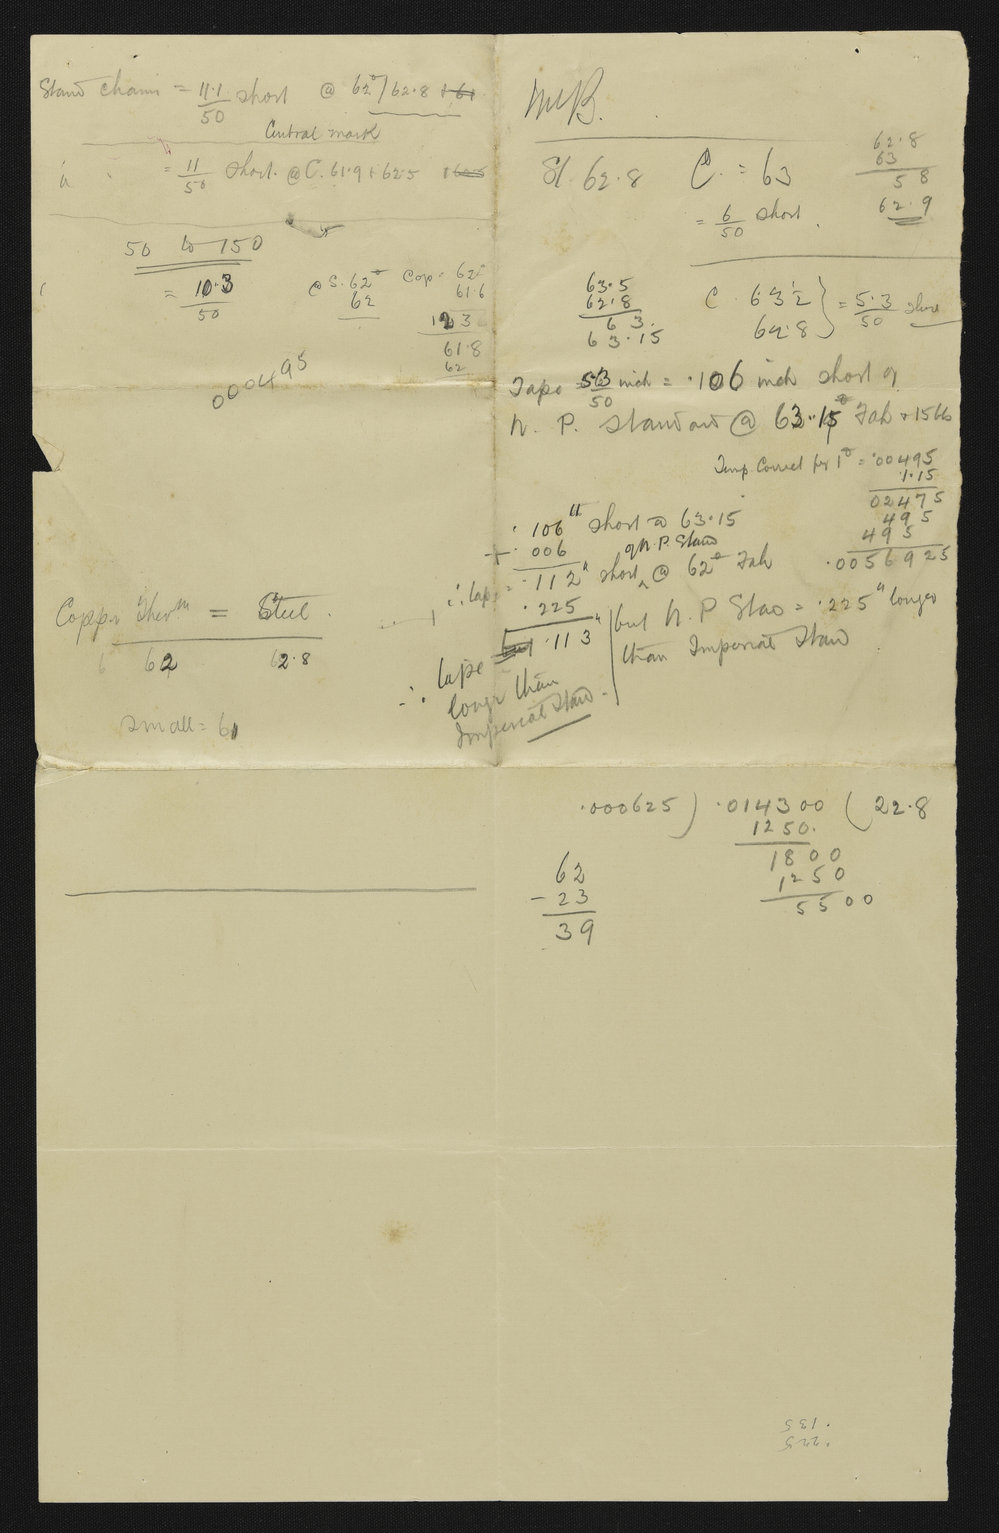 Stand chain = 11.1/50 short @ 62°/62.8
Central mark
= 11/50 short @ C. 61.9 + 62.5
50 to 150
= 10.3/50 @ S. 62° Cop. 62°
62 61.6
123
61.8
62
000495
Copper Therm = Steel
62 62.8
small = 61
McB.
St. 62.8 C. = 63
= 6/50 short
62.8
63
5 8
62.9
63.5
62.8
6 3.
63.15
C. 63½
62.8
= 5.3/50 short
Tape = 5.3/50 inch = .106 inch short of
N. P. Standard @ 63.15° Fah + 15 lb
Temp Correct for 1° = .00495
1.15
02475
495
495
.0056925
.106" short @ 63.15
+ .006 of N.P. Stand
∴ tape = .112" short @ 62° Fah
.225
.113"
but N. P Stan = .225" longer
than Imperial Stan
∴ tape
longer than
Imperial Stand.
.000625 ) .014300 ( 22.8
1250.
1800
1250
5500
62
- 23
39
.225
.135